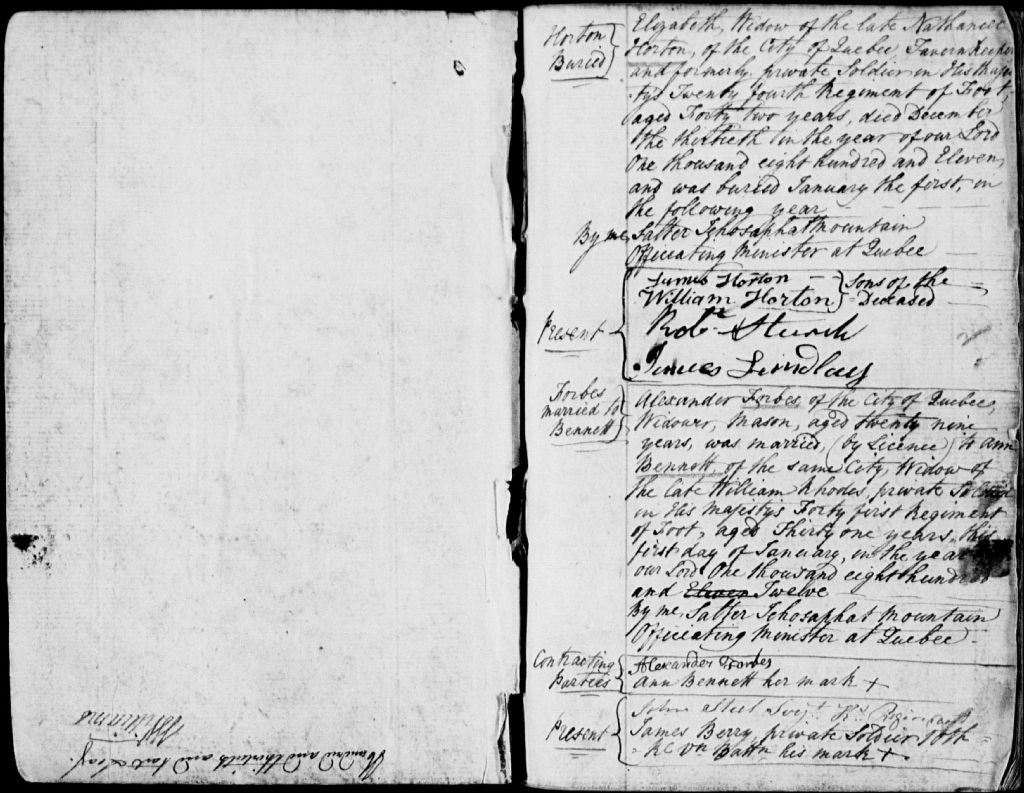 Horton
Buried
Elizabeth, Widow of the late Nathaniel
Horton, of the City of Quebec Tavern Keeper
and formerly private Soldier in His Majes
-ty's Twenty fourth Regiment of Foot,
aged Forty two years, died December
the thirtieth in the year of our Lord
One thousand eight hundred and Eleven,
and was buried January the first, in
the following year
By me, Salter Jehosaphat Mountain
Officiating Minister at Quebec
Present
James Horton
William Horton
Sons of the
Deceased
Robt
James Lindlay
Forbes
married to
Bennett
Alexander Forbes of the City of Quebec,
Widower, Mason, aged twenty nine
years, was married, (by Licence) to Ann
Bennett, of the same City, Widow of
the late William Rhodes, private Soldier
in His Majesty's Forty first Regiment
of Foot, aged Thirty one years, this
first day of January, in the year
our Lord One thousand eight hundred
and Eleven Twelve
By me, Salter Jehosaphat Mountain
Officiating Minister at Quebec
Contracting
Parties
Alexander Forbes
Ann Bennett her mark +
Present
John Serjt Regiment
James Berry, private Soldier 10th
Battn his mark +
Hundred and thirtieth and last leaf.
Williams